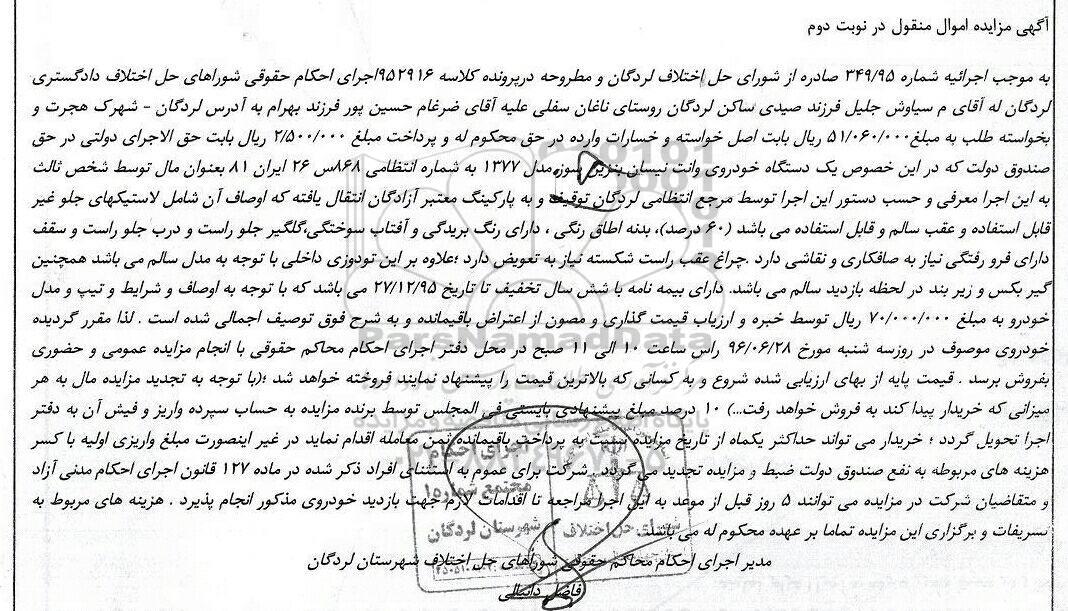 آگهی مزایده اموال منقول در نوبت دوم
به موجب اجرائیه شماره ۳۴۹/۹۵ صادره از شورای حل اختلاف لردگان و مطروحه درپرونده کلاسه ۹۵۲۹۱۶اجرای احکام حقوقی شوراهای حل اختلاف دادگستری
لردگان له آقای م سیاوش جلیل فرزند صیدی ساکن لردگان روستای ناغان سفلی علیه آقای ضرغام حسین پور فرزند بهرام به آدرس لردگان - شهرک هجرت و
بخواسته طلب به مبلغ۵۱/۰۶۰/۰۰۰ ریال بابت اصل خواسته و خسارات وارده در حق محکوم له و پرداخت مبلغ ۲/۵۰۰/۰۰۰ ریال بابت حق الاجرای دولتی در حق
صندوق دولت که در این خصوص یک دستگاه خودروی وانت نیسان بنزین سوز مدل ۱۳۷۷ به شماره انتظامی ۸۶۸س ۲۶ ایران ۸۱ بعنوان مال توسط شخص ثالث
به این اجرا معرفی و حسب دستور این اجرا توسط مرجع انتظامی لردگان توقیف و به پارکینگ معتبر آزادگان انتقال یافته که اوصاف آن شامل لاستیکهای جلو غیر
قابل استفاده و عقب سالم و قابل استفاده می باشد (۶۰ درصد)، بدنه اطاق رنگی ، دارای رنگ بریدگی و آفتاب سوختگی،گلگیر جلو راست و درب جلو راست و سقف
دارای فرو رفتگی نیاز به صافکاری و نقاشی دارد .چراغ عقب راست شکسته نیاز به تعویض دارد ؛علاوه بر این تودوزی داخلی با توجه به مدل سالم می باشد همچنین
گیر بکس و زیر بند در لحظه بازدید سالم می باشد. دارای بیمه نامه با شش سال تخفیف تا تاریخ ۲۷/۱۲/۹۵ می باشد که با توجه به اوصاف و شرایط و تیپ و مدل
خودرو به مبلغ ۷۰/۰۰۰/۰۰۰ ریال توسط خبره و ارزیاب قیمت گذاری و مصون از اعتراض باقیمانده و به شرح فوق توصیف اجمالی شده است . لذا مقرر گردیده
خودروی موصوف در روزسه شنبه مورخ ۹۶/۰۶/۲۸ راس ساعت ۱۰ الی ۱۱ صبح در محل دفتر اجرای احکام محاکم حقوقی با انجام مزایده عمومی و حضوری
بفروش برسد . قیمت پایه از بهای ارزیابی شده شروع و به کسانی که بالاترین قیمت را پیشنهاد نمایند فروخته خواهد شد ؛(با توجه به تجدید مزایده مال به هر
میزانی که خریدار پیدا کند به فروش خواهد رفت...) ۱۰ درصد مبلغ پیشنهادی بایستی فی المجلس توسط برنده مزایده به حساب سپرده واریز و فیش آن به دفتر
اجرا تحویل گردد ؛ خریدار می تواند حداکثر یکماه از تاریخ مزایده نسبت به پرداخت باقیمانده ثمن معامله اقدام نماید در غیر اینصورت مبلغ واریزی اولیه با کسر
هزینه های مربوطه به نفع صندوق دولت ضبط و مزایده تجدید می گردد . شرکت برای عموم به استثنای افراد ذکر شده در ماده ۱۲۷ قانون اجرای احکام مدنی آزاد
و متقاضیان شرکت در مزایده می توانند ۵ روز قبل از موعد به این اجرا مراجعه تا اقدامات لازم جهت بازدید خودروی مذکور انجام پذیرد . هزینه های مربوط به
تسریفات و برگزاری این مزایده تماما بر عهده محکوم له می باشد.
مدیر اجرای احکام محاکم حقوقی شوراهای حل اختلاف شهرستان لردگان
فاضل دانیالی
ParsNamadData
اجرای احکام
شورای حل اختلاف شهرستان لردگان